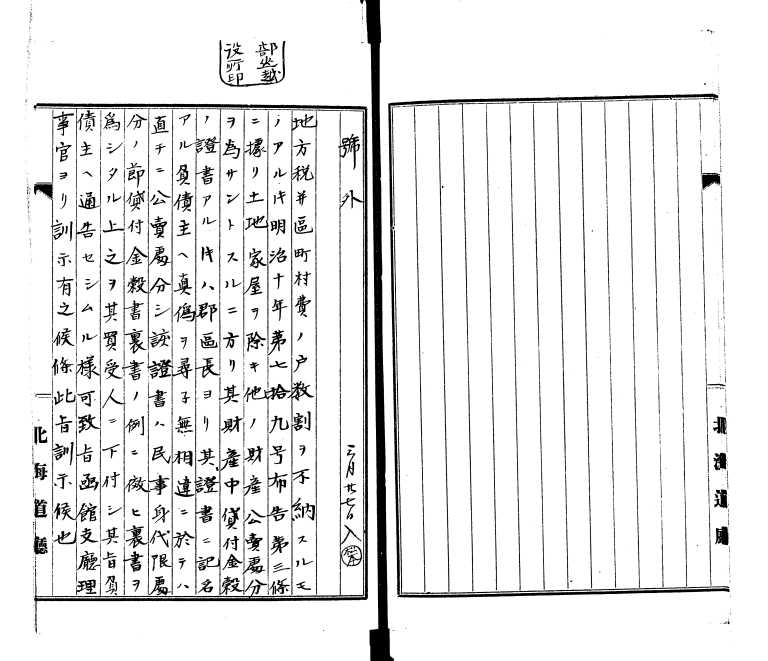 號外
三月廿七日入
地方税并區町村費ノ戸数割ヲ不納スルモ
ノアル片明治十年第七拾九号布告第三條
ニ據リ土地家屋ヲ除キ他ノ財產公賣處分
ヲ為サントスルニ方リ其財產中貸付金穀
ノ證書アル片ハ郡區長ヨリ其證書ニ記名
アル負債主ヘ真僞ヲ尋子無相違ニ於テハ
直チニ公賣處分シ該證書ハ民事身代限處
分ノ節貸付金穀書裏書ノ例ニ傚ヒ裏書ヲ
爲シタル上之ヲ其買受人ニ下付シ其旨負
債主ヘ通告セシムル樣可致旨函館支廳理
事官ヨリ訓示有之候條此旨訓示候也
北海道廳
北海道廳